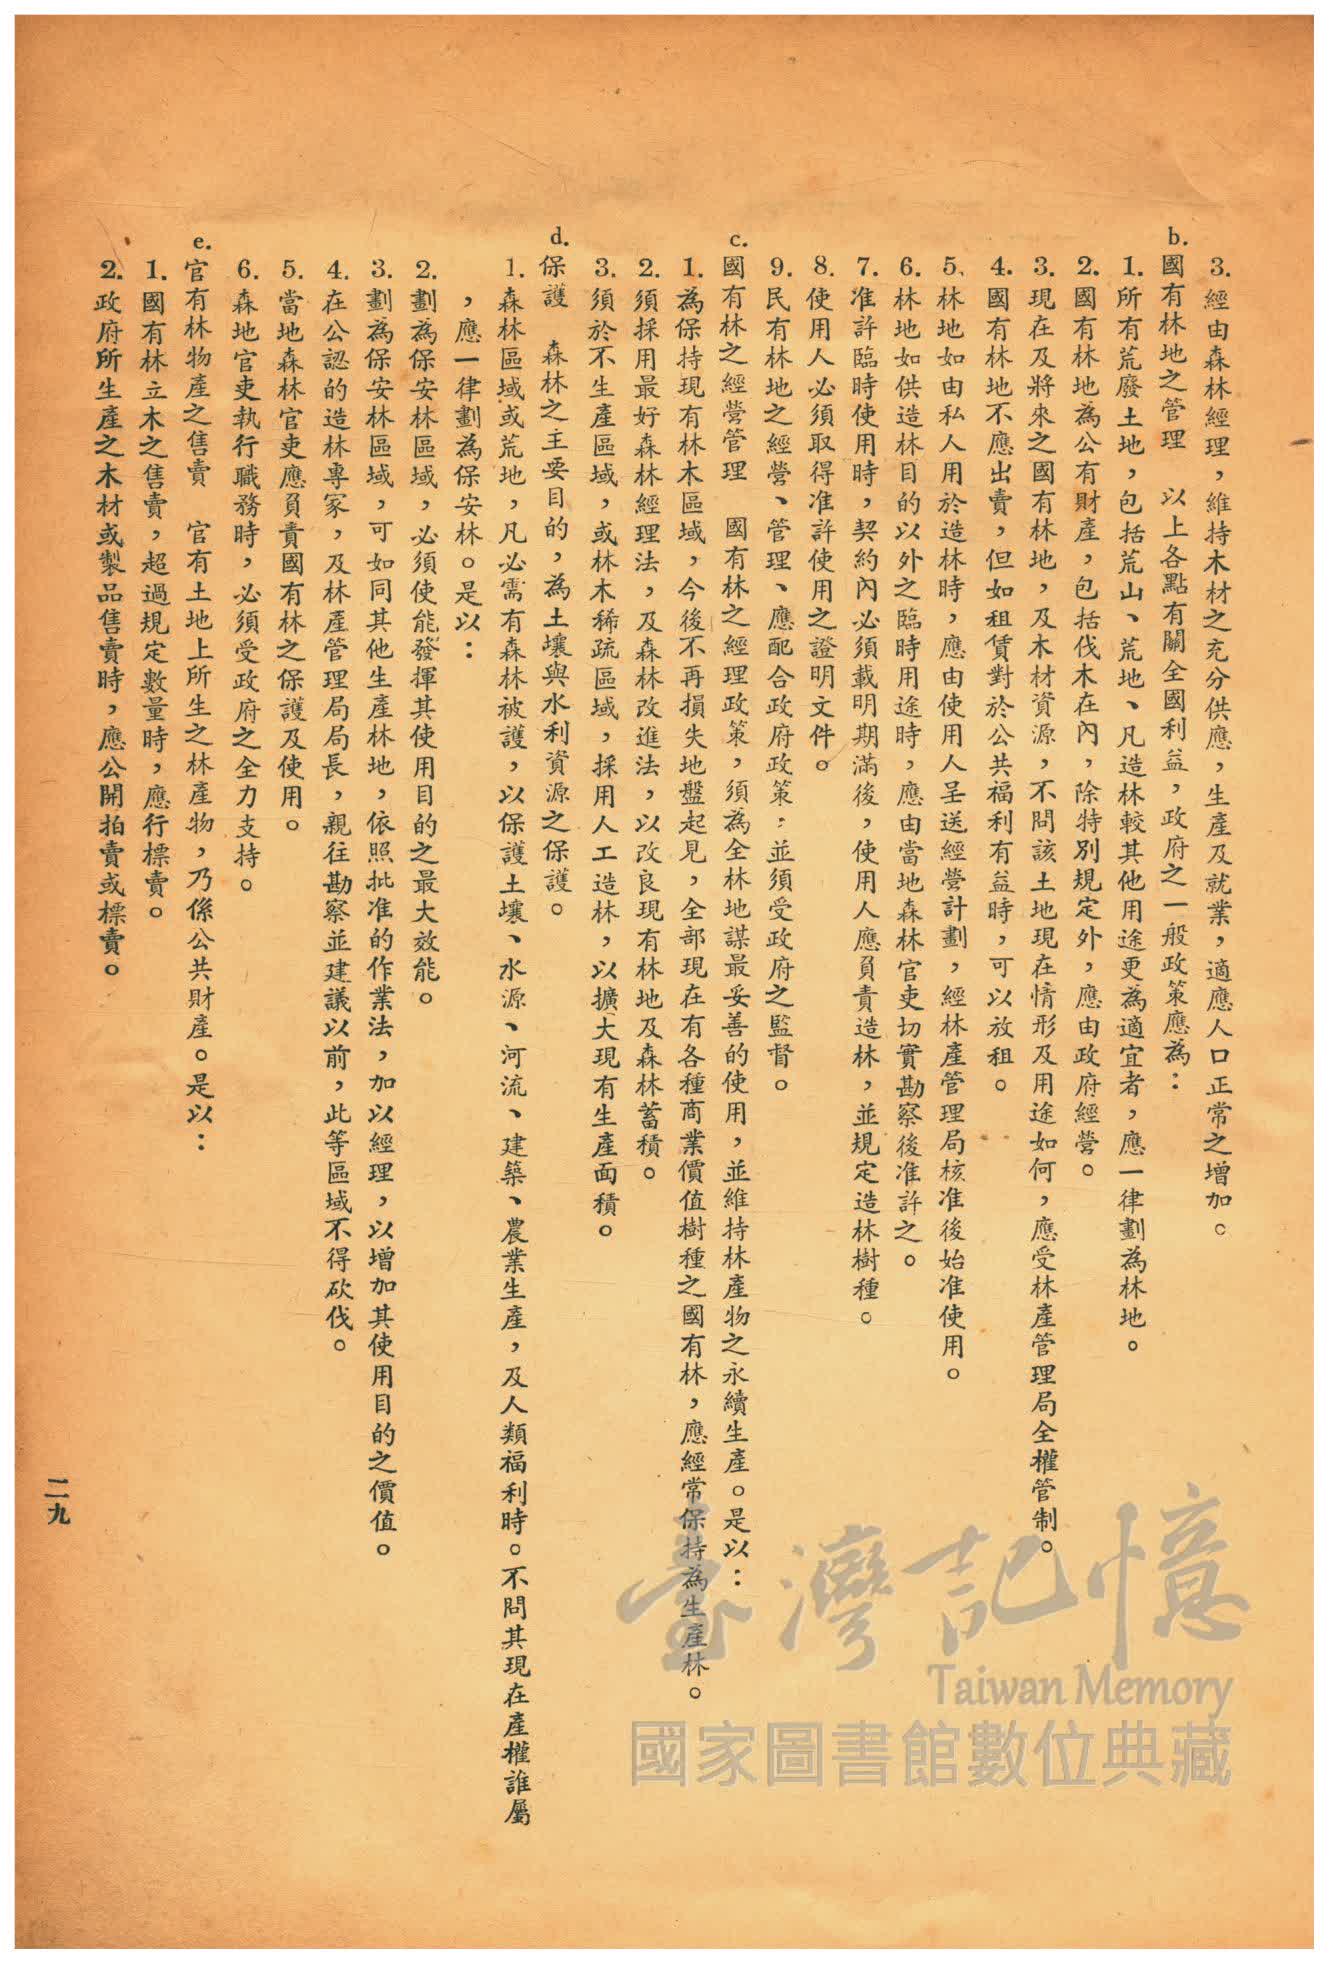 3.經由森林經理，維持木材之充分供應，生產及就業，適應人口正常之增加。
b.國有林地之管理　以上各點有關全國利益，政府之一般政策應為：
1.所有荒廢土地，包括荒山、荒地、凡造林較其他用途更為適宜者，應一律劃為林地。
2.國有林地為公有財產，包括伐木在內，除特別規定外，應由政府經營。
3.現在及將來之國有林地，及木材資源，不問該土地現在情形及用途如何，應受林產管理局全權管制。
4.國有林地不應出賣，但如租賃對於公共福利有益時，可以放租。
5.林地如由私人用於造林時，應由使用人呈送經營計劃，經林產管理局核准後始准使用。
6.林地如供造林目的以外之臨時用途時，應由當地森林官吏切實勘察後准許之。
7.准許臨時使用時，契約內必須載明期滿後，使用人應負責造林，並規定造林樹種。
8.使用人必須取得准許使用之證明文件。
9.民有林地之經營、管理、應配合政府政策；並須受政府之監督。
c.國有林之經營管理　國有林之經理政策，須為全林地謀最妥善的使用，並維持林產物之永續生產。是以：
1.為保持現有林木區域，今後不再損失地盤起見，全部現在有各種商業價值樹種之國有林，應經常保持為生產林。
2.須採用最好森林經理法，及森林改進法，以改良現有林地及森林蓄積。
3.須於不生產區域，或林木稀疏區域，採用人工造林，以擴大現有生產面積。
d.保護　森林之主要目的，為土壤與水利資源之保護。
1.森林區域或荒地，凡必需有森林被護，以保護土壤、水源、河流、建築、農業生產，及人類福利時。不問其現在產權誰屬
，應一律劃為保安林。是以：
2.劃為保安林區域，必須使能發揮其使用目的之最大效能。
3.劃為保安林區域，可如同其他生產林地，依照批准的作業法，加以經理，以增加其使用目的之價值。
4.在公認的造林專家，及林產管理局局長，親往勘察並建議以前，此等區域不得砍伐。
5.當地森林官吏應負責國有林之保護及使用。
6.森地官吏執行職務時，必須受政府之全力支持。
e.官有林物產之售賣　官有土地上所生之林產物，乃係公共財產。是以：
1.國有林立木之售賣，超過規定數量時，應行標賣。
2.政府所生產之木材或製品售賣時，應公開拍賣或標賣。
二九
臺灣記憶
Taiwan Memory
國家圖書館數位典藏